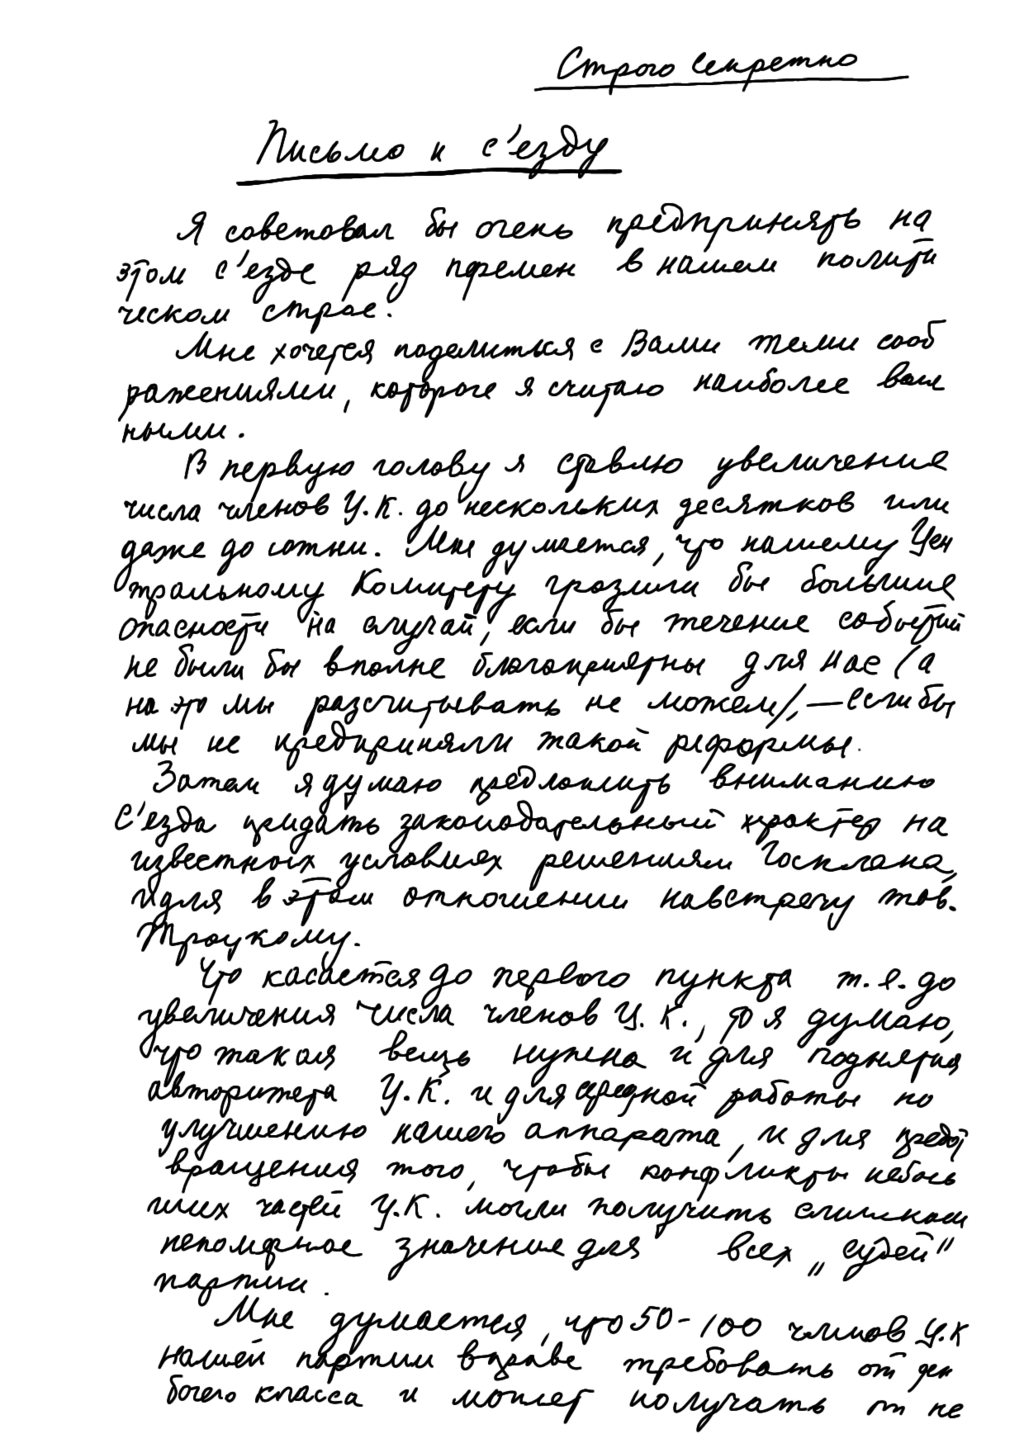 Строго секретно
Письмо к с'езду
Я советовал бы очень предпринять на
этом с'езде ряд перемен в нашем полити
ческом строе.
Мне хочется поделиться с Вами теми сооб
ражениями, которые я считаю наиболее важ
ными.
В первую голову я ставлю увеличение
числа членов Ц.К. до нескольких десятков или
даже до сотни. Мне думается, что нашему Цен
тральному Комитету грозили бы большие
опасности на случай, если бы течение событий
не были бы вполне благоприятны для нас (а
на это мы рассчитывать не можем/, — если бы
мы не предприняли такой реформы.
Затем я думаю предложить вниманию
с'езда придать законодательный характер на
известных условиях решениям Госплана,
идя в этом отношении навстречу тов.
Троцкому.
Что касается до первого пункта т.е. до
увеличения числа членов Ц.К., то я думаю,
что такая вещь нужна и для поднятия
авторитета Ц.К. и для работы по
улучшению нашего аппарата, и для предот
вращения того, чтобы конфликты неболь
ших частей Ц.К. могли получить слишком
непомерное значение для всех „судеб"
партии.
Мне думается, что 50-100 членов Ц.К
нашей партии вправе требовать от
бочего класса и может получать от не